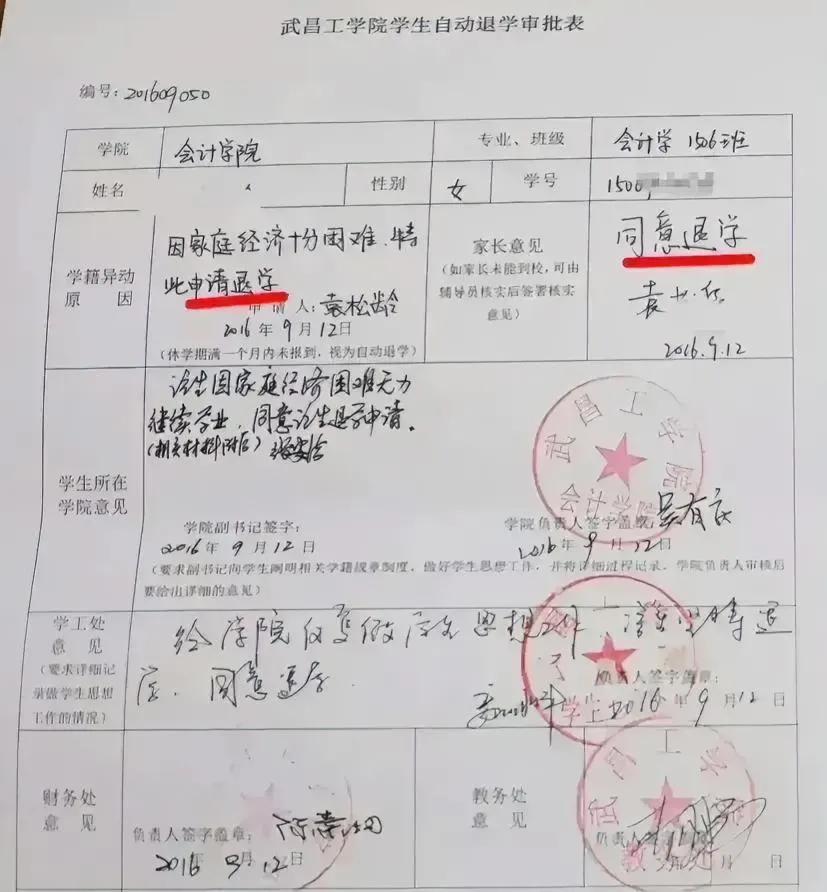 武昌工学院学生自动退学审批表
编号:201609050
学院 会计学院 专业、班级 会计学 1506班
姓名 性别 女 学号 1506
学籍异动
原因
因家庭经济十分困难,特
此申请退学
申请人:袁松龄
2016年9月12日
(休学期满一个月内未报到,视为自动退学)
家长意见
(如家长未能到校,可由
辅导员核实后签署核实
意见)
同意退学
2016.9.12
学生所在
学院意见
该生因家庭经济困难无力
继续学业,同意该生退学申请。
(相关材料附后)
学院副书记签字:
2016年9月12日
武昌工学院
会计学院
学院负责人签字盖章:吴有庆
2016年9月12日
(要求副书记向学生阐明相关学籍规章制度,做好学生思想工作,并将详细过程记录,学院负责人审核后
要给出详细的意见)
学工处
意见
(要求详细记
录做学生思想
工作的情况)
学,同意退学.
负责人签字盖章:
2016年9月12日
财务处
意见
负责人签字盖章:
2016 9月12日
教务处
意见
武昌工学院
教务处
负责人签字盖章: